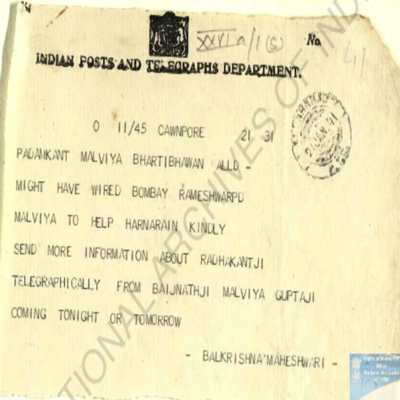 XXVI a/1(S)
No.
41
INDIAN POSTS AND TELEGRAPHS DEPARTMENT.
O 11/45 CAWNPORE 21 31
PADAMKANT MALVIYA BHARTIBHAWAN ALLD -
MIGHT HAVE WIRED BOMBAY RAMESHWARPD
MALVIYA TO HELP HARNARAIN KINDLY
SEND MORE INFORMATION ABOUT RADHAKANTJI
TELEGRAPHICALLY FROM BAIJNATHJI MALVIYA GUPTAJI
COMING TONIGHT OR TOMORROW
- BALKRISHNA MAHESHWARI -
NATIONAL ARCHIVES OF INDIA